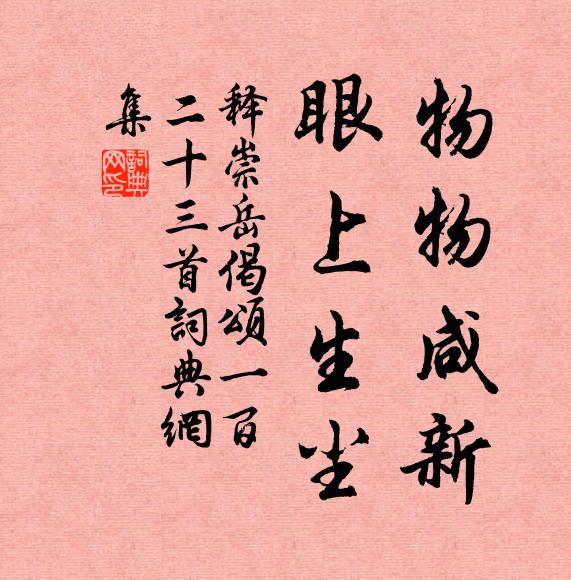 物物咸新
眼上生尘
释崇岳偈頌一百
二十三首詞典網
集
詞典
网印